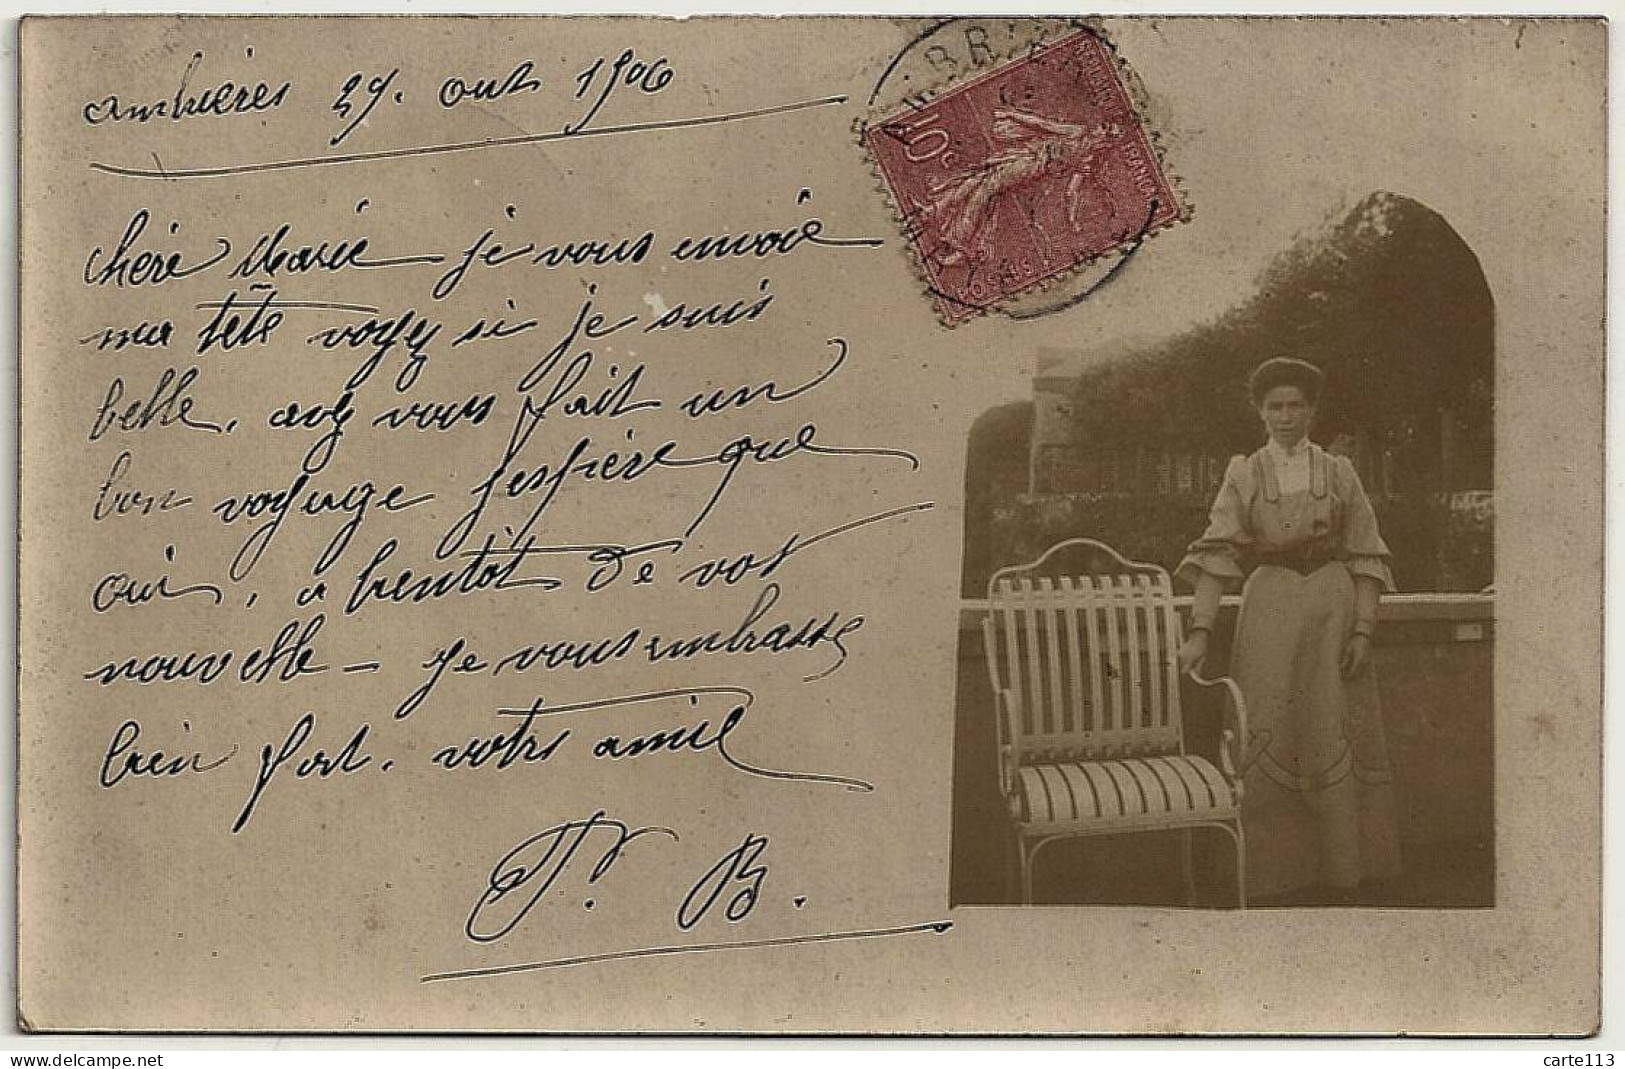 ambrières 29. out 1906
chère Marie je vous envoie
ma tête voyez si je suis
belle. avez vous fait un
bon voyage jespère que
oui, a bientôt de vos
nouvelle - je vous embrasse
bien fort. votre amie
P. B.
10c
carte113